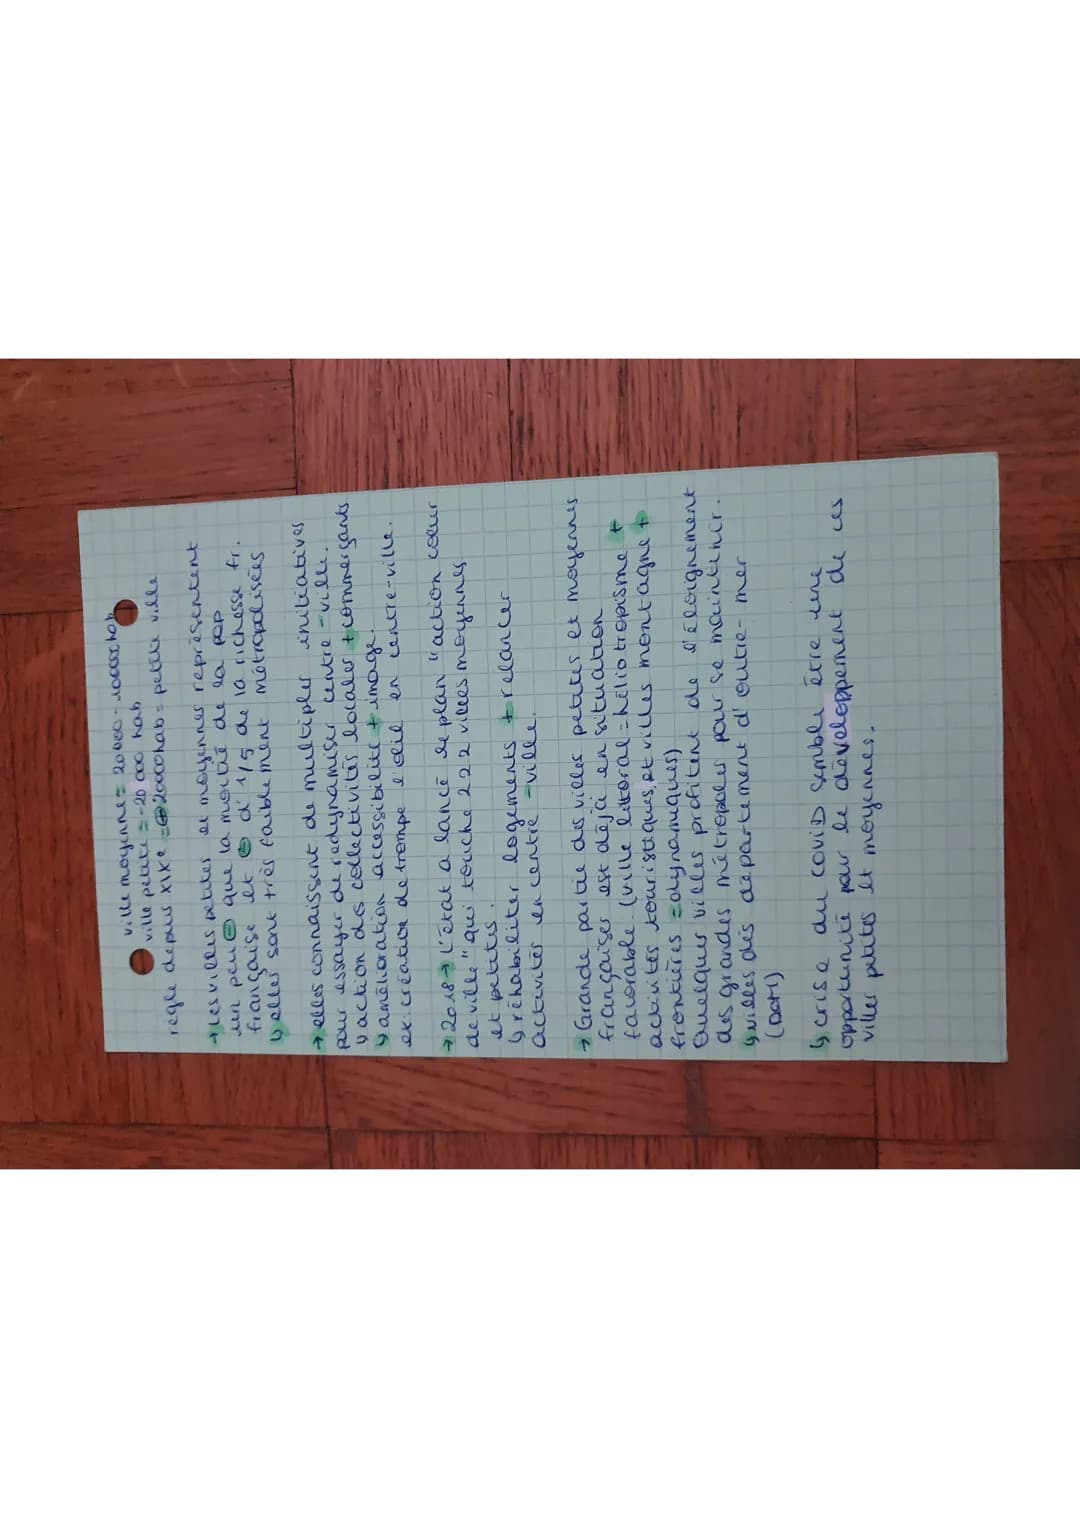 ville moyenne = 20 000 - 100000 hab
ville petite = -20 000 hab
règle depuis XIXe = ⊕ 20000hab = petite ville
→ Les villes petites et moyennes représentent
un peu ⊖ que la moitié de la pop
française et ⊖ d'1/5 de la richesse fr.
↳ elles sont très faiblement métropolisées
→ elles connaissent de multiples initiatives
pour essayer de redynamiser centre-ville.
↳ action des collectivités locales + commerçants
↳ amélioration accessibilité + image.
ex: créative de trompe l'œil en centre-ville.
→ 2018 → L'état a lancé le plan "action cœur
de ville" qui touche 222 villes moyennes
et petites.
↳ réhabiliter logements + relancer
activités en centre-ville.
→ Grande partie des villes petites et moyennes
françaises est déjà en situation
favorable. (ville littoral = héliotropisme +
activités touristiques, et villes montagne +
frontières = dynamiques)
Quelques villes profitent de l'éloignement
des grandes métropoles pour se maintenir.
↳ villes des département d'outre-mer
(DOM)
↳ crise du COVID semble être une
opportunité pour le développement de ces
villes petites et moyennes.